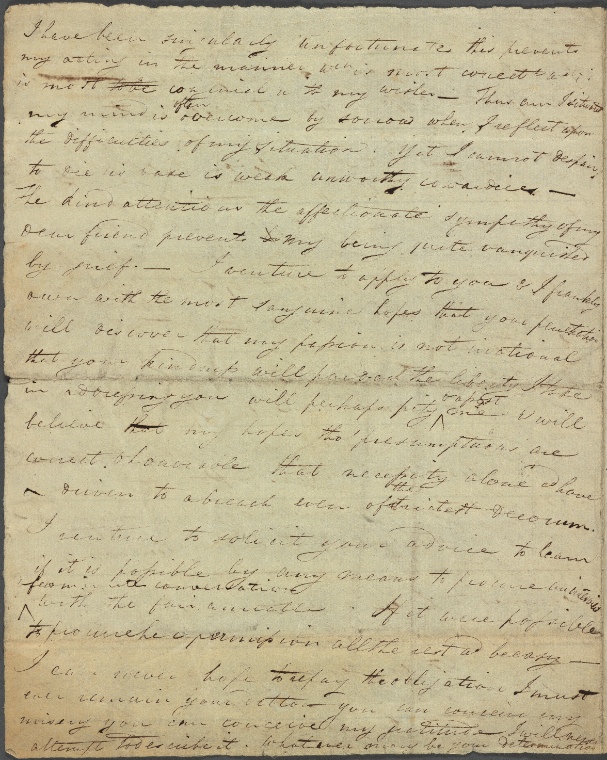 I have been singularly unfortunate this prevents
my acting in the manner is most correct
is most to my wishes — Thus am I situated
my mind is often overcome by sorrow when I reflect upon
the difficulties of my situation. Yet I cannot despair,
to die is base is weak unworthy cowardice. —
The kind attentions the affectionate sympathy of my
dear friend prevents my being quite vanquished
by grief. — I venture to apply to you & I frankly
own with the most sanguine hopes that your penetration
will discover that my passion is not irrational
that your kindness will pardon the liberty I take
in addressing you will perhaps pity one & will
believe that my hopes tho presumptuous are
correct & honorable that necessity alone could have
driven to a breach even of the strictest Decorum.
I venture to solicit your advice to learn
if it is possible by any means to procure an
from conversation
with the fair amiable If it were possible
to procure permission all the rest as beasy —
I can never hope to repay the obligation I must
ever remain your debtor you can conceive my
misery you can conceive my gratitude I will never
attempt to describe it. Whatever may be your determination